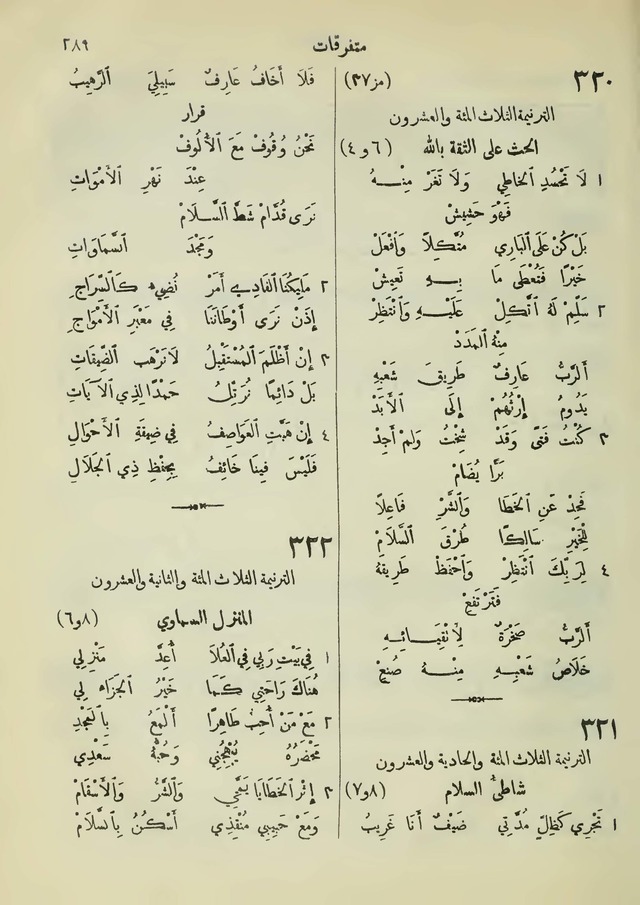 متفرقات ٢٨٩
٣٢٠ (مز٣٧)
الترنيمة الثلاث المئة والعشرون
الحث على الثقة بالله (٦ و٤)
١ لَا تَحْسُدِ الخَاطِي وَلَا تَغَرْ مِنْهُ
فَهْوَ حَشِيشْ
بَلْ كُنْ عَلَى البَارِي مُتَّكِلاً وَافْعَلْ
خَيْرًا فَتُعْطَى مَا بِهِ تَعِيشْ
٢ سَلِّمْ لَهُ اتَّكِلْ عَلَيْهِ وَانْتَظِرْ
مِنْهُ المَدَدْ
أَلرَّبُّ عَارِفٌ طَرِيقَ شَعْبِهِ
يَدُومُ إِرْثُهُمْ إِلَى الأَبَدْ
٣ كُنْتُ فَتًى وَقَدْ شِخْتُ وَلَمْ أَجِدْ
بَرًّا يُضَامْ
فَحِدْ عَنِ الخَطَا وَالشَّرِّ فَاعِلاً
لِلْخَيْرِ سَالِكًا طُرْقَ السَّلَامْ
٤ لِرَبِّكَ انْتَظِرْ وَاحْفَظْ طَرِيقَهُ
فَتَرْتَفِعْ
أَلرَّبُّ صَخْرَةٌ لِأَتْقِيَائِهِ
خَلَاصُ شَعْبِهِ مِنْهُ صُنِعْ
٣٢١
الترنيمة الثلاث المئة والحادية والعشرون
شاطئ السلام (٨ و٧)
١ تَجْرِي كَظِلٍّ مُدَّتِي ضَيْفٌ أَنَا غَرِيبُ
فَلَا أَخَافُ عَارِفٌ سَبِيلِيَ الرَّهِيبُ
قرار
نَحْنُ وُقُوفٌ مَعَ الأُلُوفْ
عِنْدَ نَهْرِ الأَمْوَاتِ
نَرَى قُدَّامْ شَطَّ السَّلَامْ
وَمَجْدَ السَّمَاوَاتِ
٢ مَلِيكُنَا الفَادِي أَمَرْ نُضِيءُ كَالسِّرَاجِ
إِذَنْ نَرَى أَوْطَانَنَا فِي مَعْبَرِ الأَمْوَاجِ
٣ إِنْ أَظْلَمَ المُسْتَقْبِلُ لَا نَرْهَبِ الضِّيقَاتِ
بَلْ دَائِمًا نُرَتِّلُ حَمْدًا لِذِي الآيَاتِ
٤ إِنْ هَبَّتِ العَوَاصِفُ فِي ضِيقَةِ الأَحْوَالِ
فَلَيْسَ فِينَا خَائِفُ بِحِفْظِ ذِي الجَلَالِ
٣٢٢
الترنيمة الثلاث المئة والثانية والعشرون
المنزل السماوي (٨ و٦)
١ فِي بَيْتِ رَبِّي فِي العُلَا أُعِدَّ مَنْزِلِي
هُنَاكَ رَاحَتِي كَمَا خَيْرُ الجَزَاءِ لِي
٢ مَعْ مَنْ أُحِبُّ طَاهِرًا أَلْمَعُ بِالمَجْدِ
مَحْضَرُهُ يُبْهِجُنِي وَحُبُّهُ سَعْدِي
٣ إِثْرُ الخَطَايَا يَمَّحِي وَالشَّرُّ وَالأَسْقَامْ
وَمَعْ حَبِيبِي مُنْقِذِي أَسْكُنُ بِالسَّلَامْ